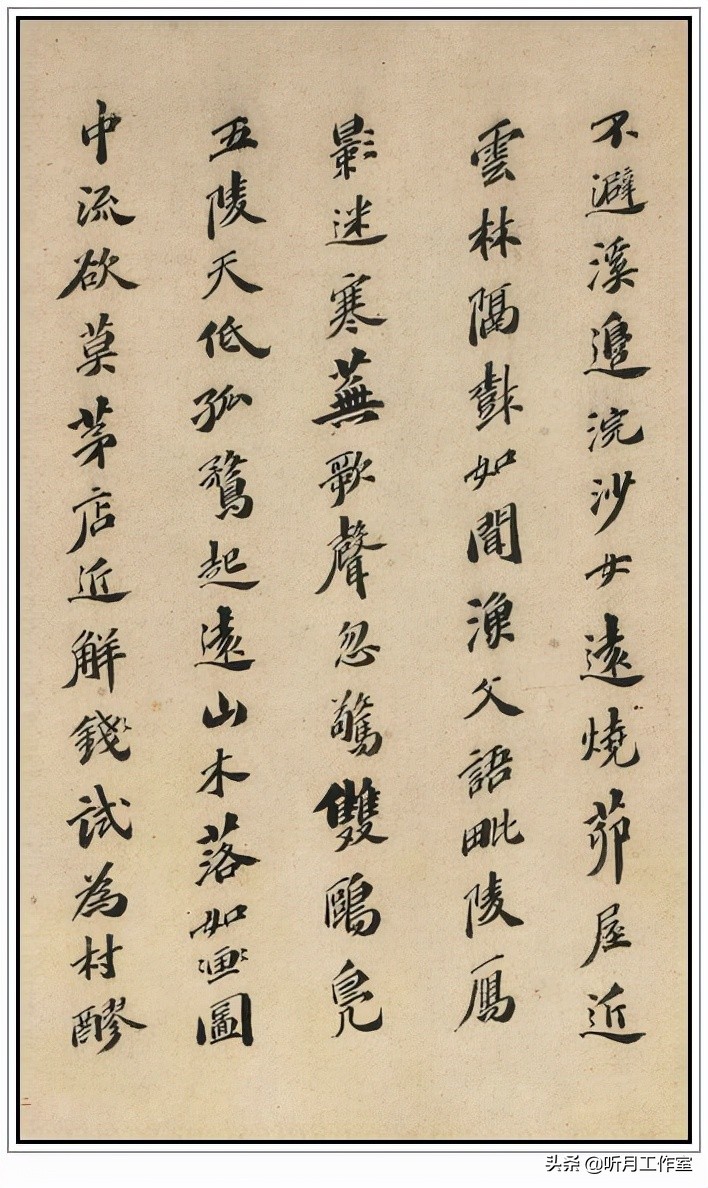 不避溪邊浣沙女遠燒茆屋近
雲林隔對如聞漁父語毗陵雁
影迷寒蕪歌聲忽驚雙鷗鳧
五陵天低孤鶩起遠山木落如畫圖
中流欲莫茅店近解錢試為村醪
头条 @听月工作室